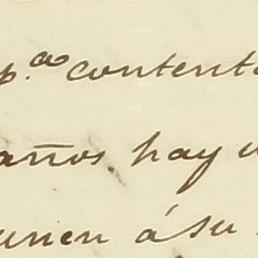 p.ª contenta
años hay u
unen á su